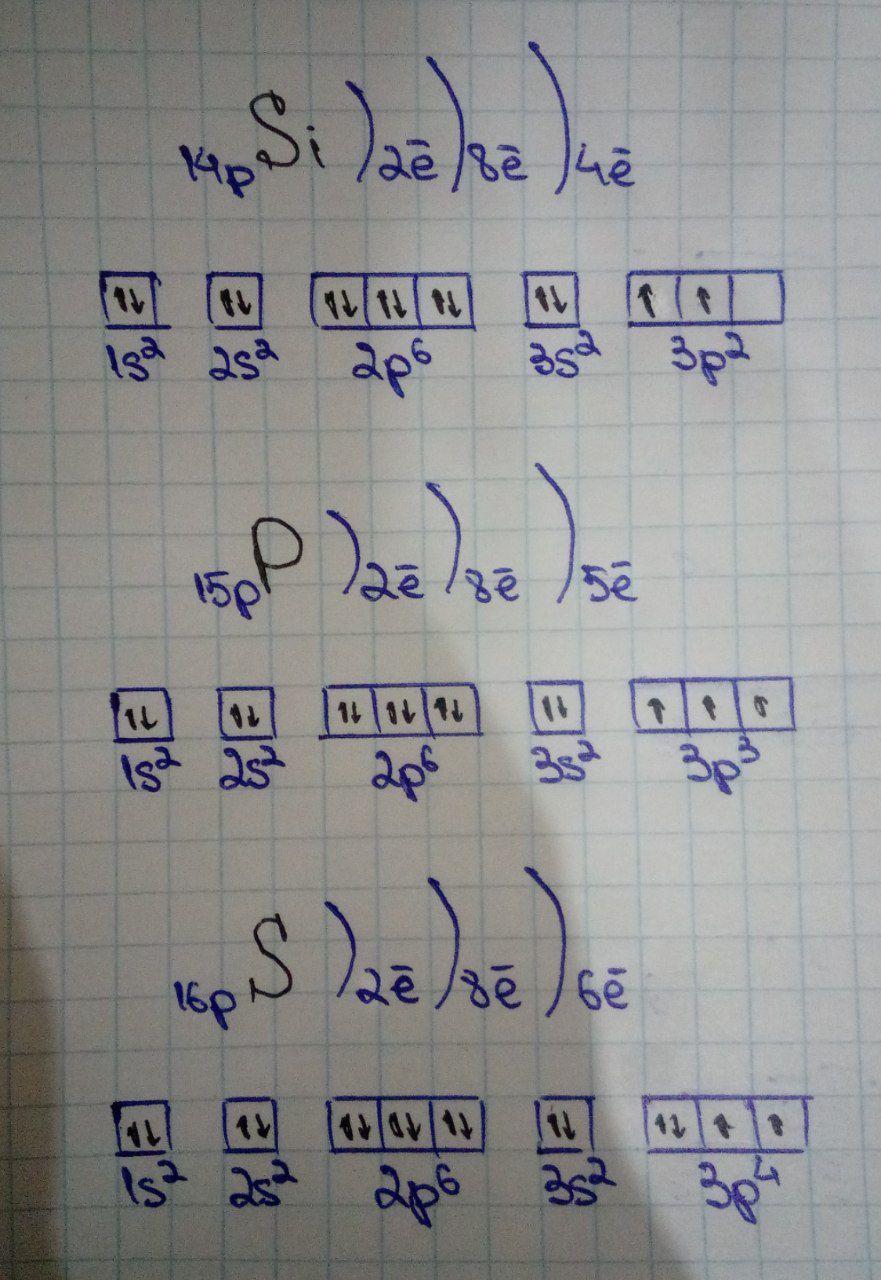 14p Si )2ē )8ē )4ē
↑↓ ↑↓ ↑↓ ↑↓ ↑↓ ↑↓ ↑ ↑
1s² 2s² 2p⁶ 3s² 3p²
15p P )2ē )8ē )5ē
↑↓ ↑↓ ↑↓ ↑↓ ↑↓ ↑↓ ↑ ↑ ↑
1s² 2s² 2p⁶ 3s² 3p³
16p S )2ē )8ē )6ē
↑↓ ↑↓ ↑↓ ↑↓ ↑↓ ↑↓ ↑↓ ↑ ↑
1s² 2s² 2p⁶ 3s² 3p⁴